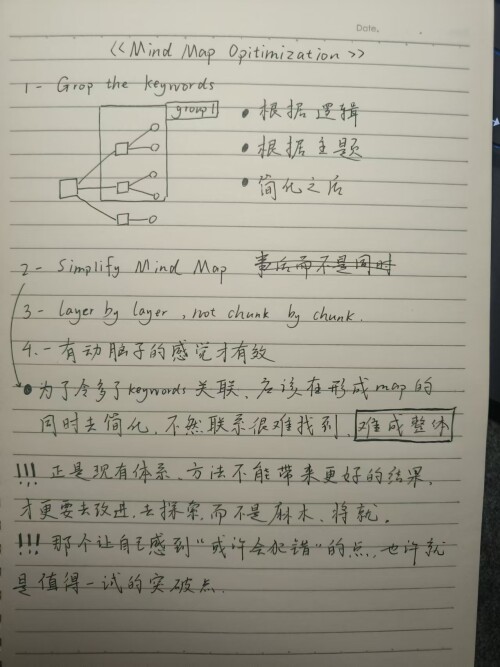 Date.
<<Mind Map Opitimization>>
1- Grop the keywords
group1
• 根据逻辑
• 根据主题
• 简化之后
2- Simplify Mind Map 事后而不是同时
3- layer by layer, not chunk by chunk.
4.- 有动脑子的感觉才有效
• 为了令多了keywords关联、应该在形成map的
同时去简化, 不然联系很难找到、难成整体
!!! 正是现有体系、方法不能带来更好的结果,
才更要去改进、去探索, 而不是麻木、将就。
!!! 那个让自己感到"或许会犯错"的点, 也许就
是值得一试的突破点.